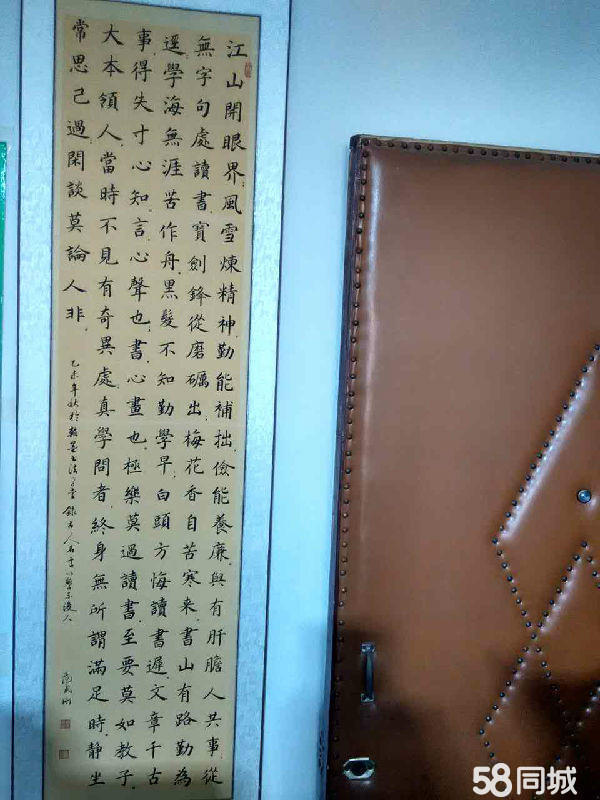 江山開眼界風雪煉精神勤能補拙儉能養廉與有肝膽人共事從
無字句處讀書寶劍鋒從磨礪出梅花香自苦寒來書山有路勤為
逕學海無涯苦作舟黑髮不知勤學早白頭方悔讀書遲文章千古
事得失寸心知言心聲也書心畫也極樂莫過讀書至要莫如教子
大本領人當時不見有奇異處真學問者終身無所謂滿足時靜坐
常思己過閑談莫論人非
乙未年秋於翰墨书法学堂錄古人名言以警示後人
58同城